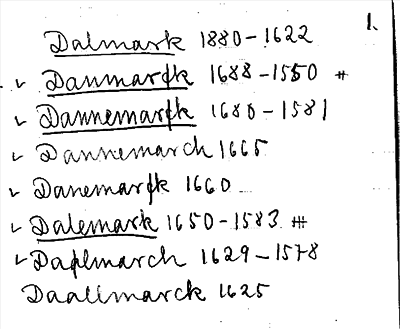 1.
Dalmark 1880-1622
✓ Danmarfk 1688-1550 #
✓ Dannemarfk 1680-1581
✓ Dannemarch 1665
✓ Danemarfk 1660
✓ Dalemark 1650-1583 #
✓ Daplmarch 1629-1578
Daallmarck 1625